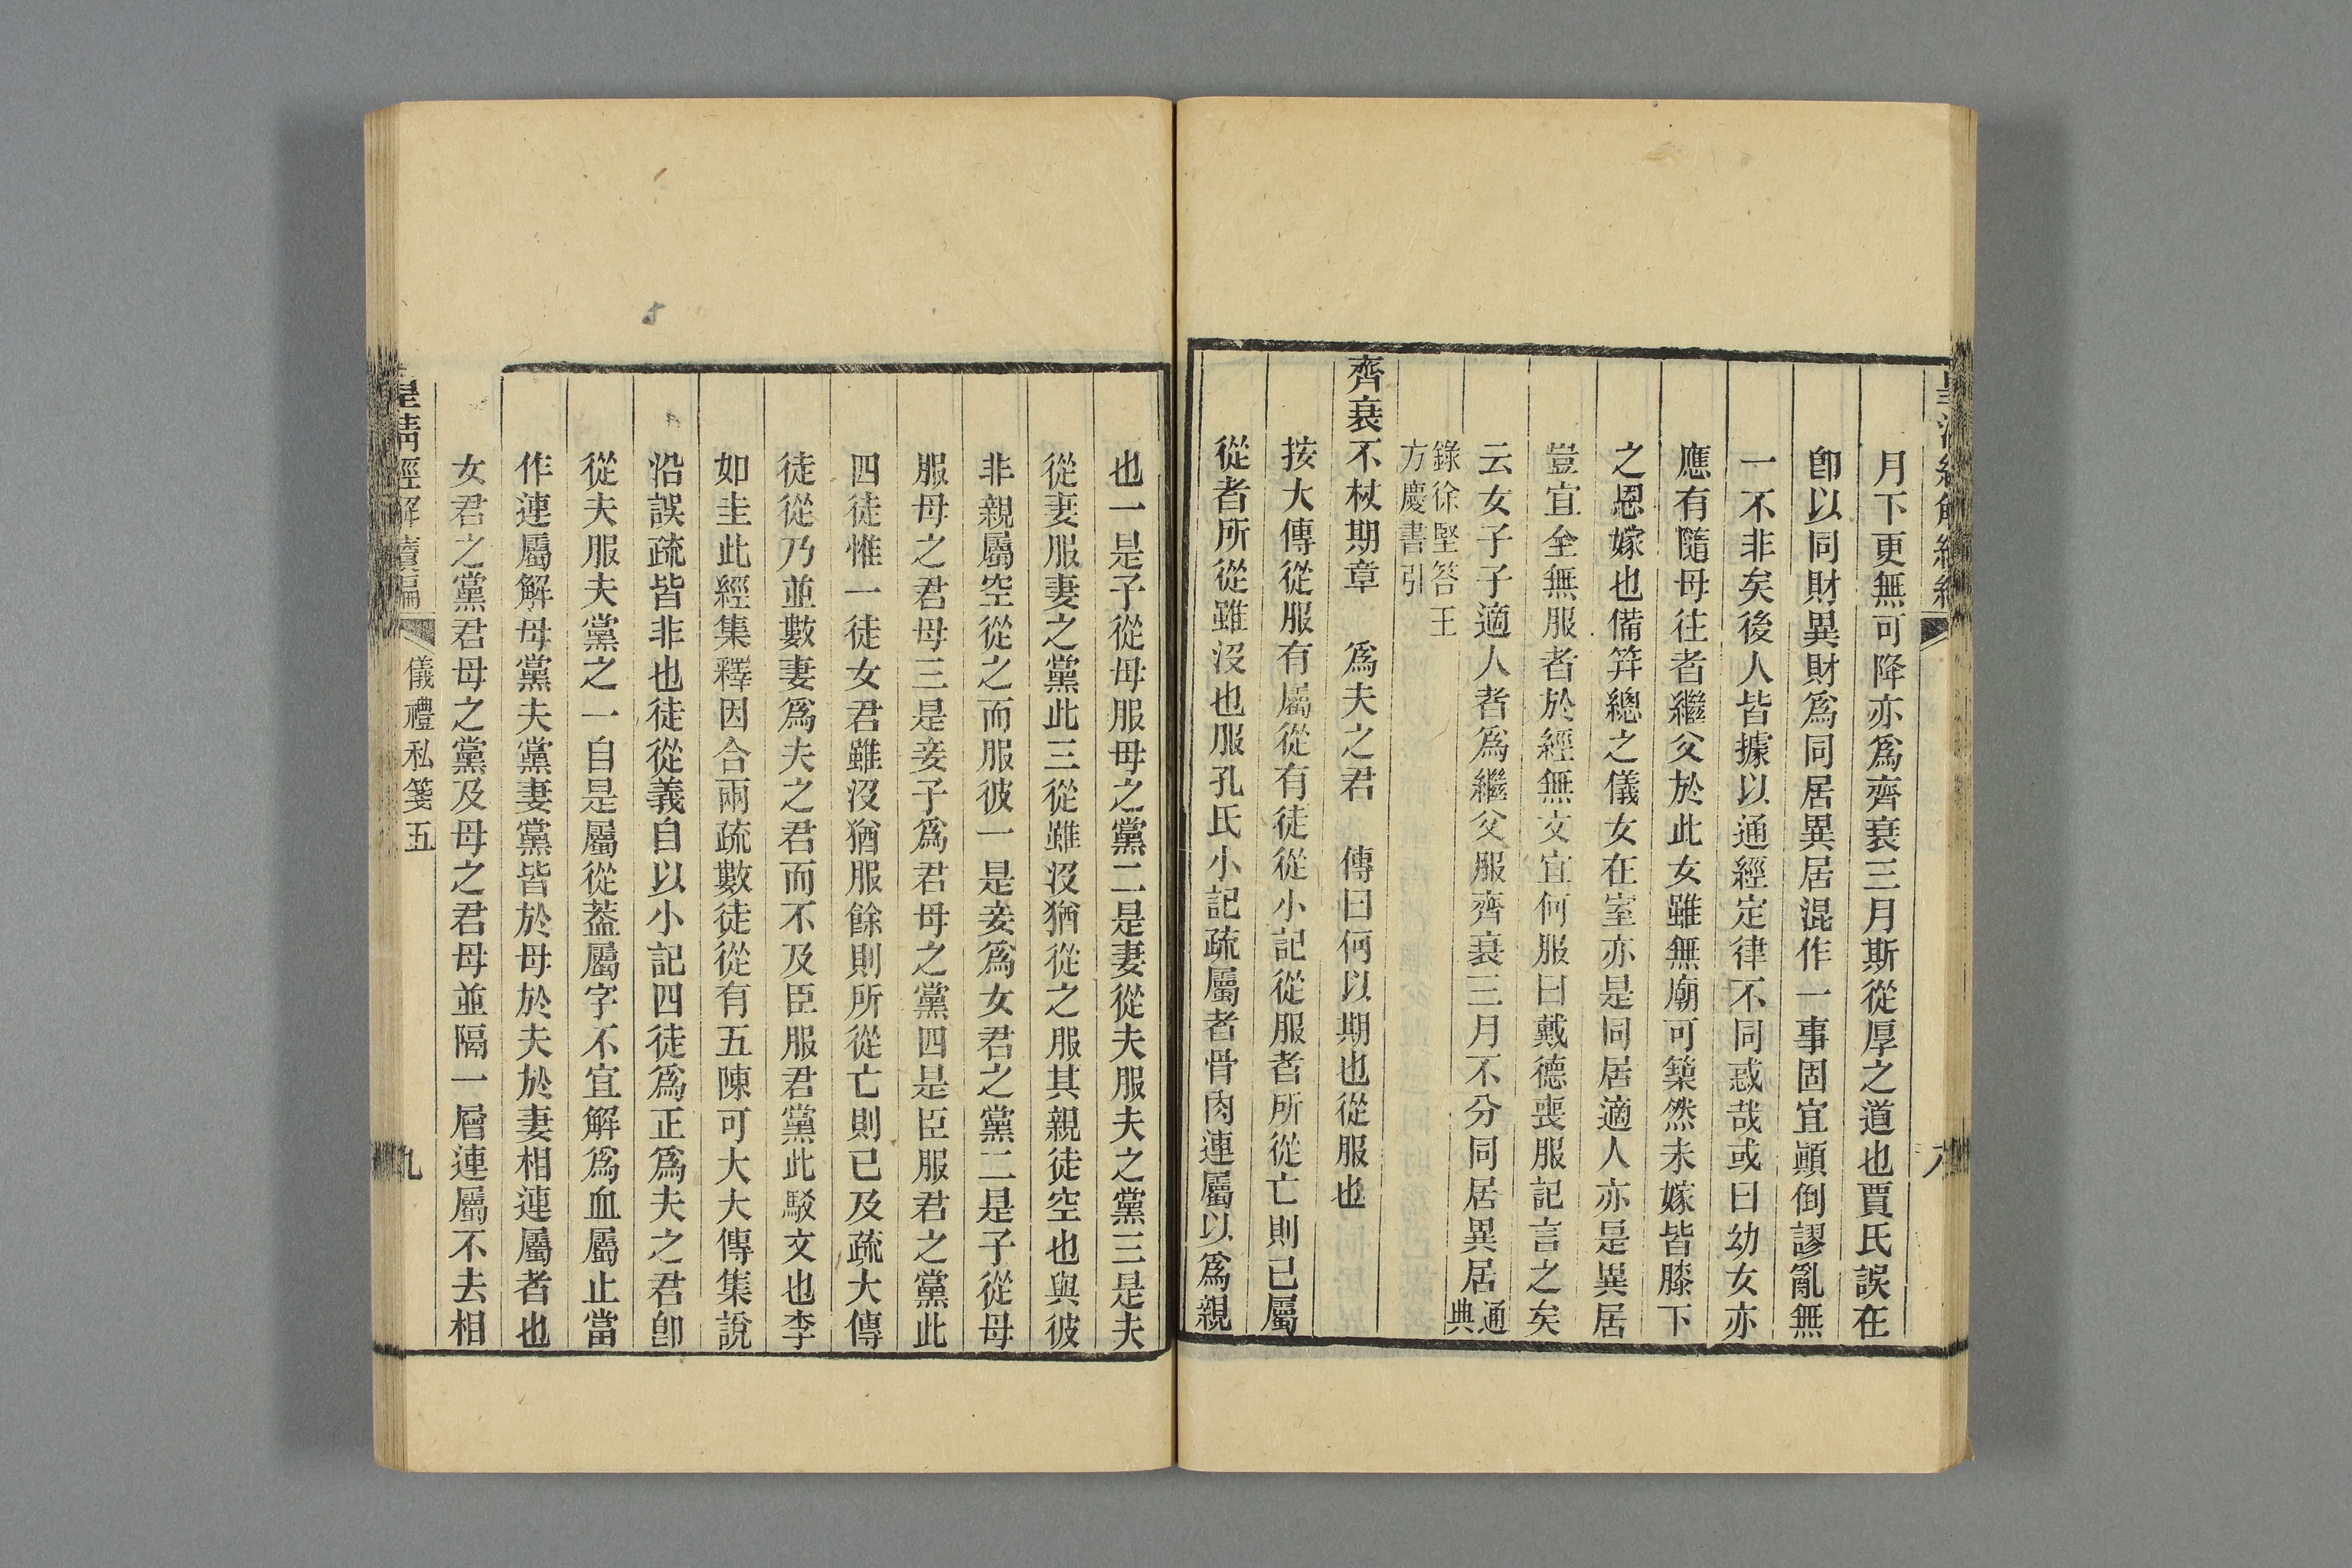 月下更無可降亦爲齊衰三月斯從厚之道也賈氏誤在
卽以同財異財爲同居異居混作一事固宜顚倒謬亂無
一不非矣後人皆據以通經定律不同惑哉或曰幼女亦
應有隨母往者繼父於此女雖無廟可築然未嫁皆膝下
之恩嫁也備筓總之儀女在室亦是同居適人亦是異居
豈宜全無服者於經無文宜何服曰戴德喪服記言之矣
云女子子適人者爲繼父服齊衰三月不分同居異居通典
錄徐堅答王
方慶書引
齊衰不杖期章　爲夫之君　傳曰何以期也從服也
按大傳從服有屬從有徒從小記從服者所從亡則已屬
從者所從雖沒也服孔氏小記疏屬者骨肉連屬以爲親
也一是子從母服母之黨二是妻從夫服夫之黨三是夫
從妻服妻之黨此三從雖沒猶從之服其親徒空也與彼
非親屬空從之而服彼一是妾爲女君之黨二是子從母
服母之君母三是妾子爲君母之黨四是臣服君之黨此
四徒惟一徒女君雖沒猶服餘則所從亡則已及疏大傳
徒從乃並數妻爲夫之君而不及臣服君黨此駁文也李
如圭此經集釋因合兩疏數徒從有五陳可大大傳集說
沿誤疏皆非也徒從義自以小記四徒爲正爲夫之君卽
從夫服夫黨之一自是屬從蓋屬字不宜解爲血屬止當
作連屬解母黨夫黨妻黨皆於母於夫於妻相連屬者也
女君之黨君母之黨及母之君母並隔一層連屬不去相
皇清經解續編　儀禮私箋五　九